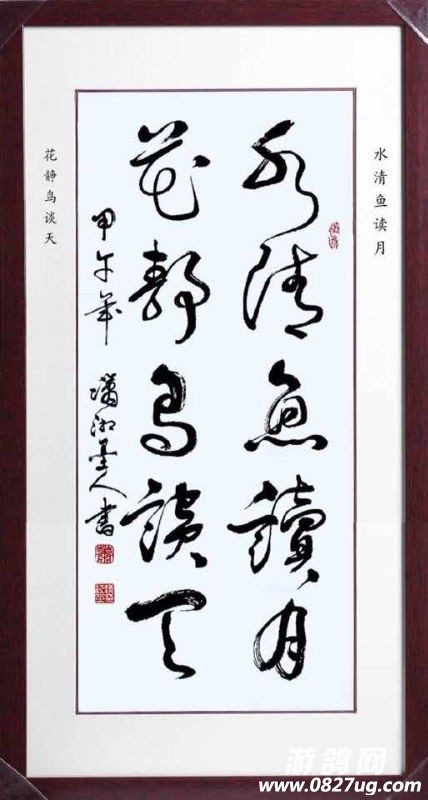 水清鱼读月
水清鱼讀月
花静鸟谈天
甲午年 瀟湘墨人書
花静鸟谈天
游鸽网
www.0827ug.com